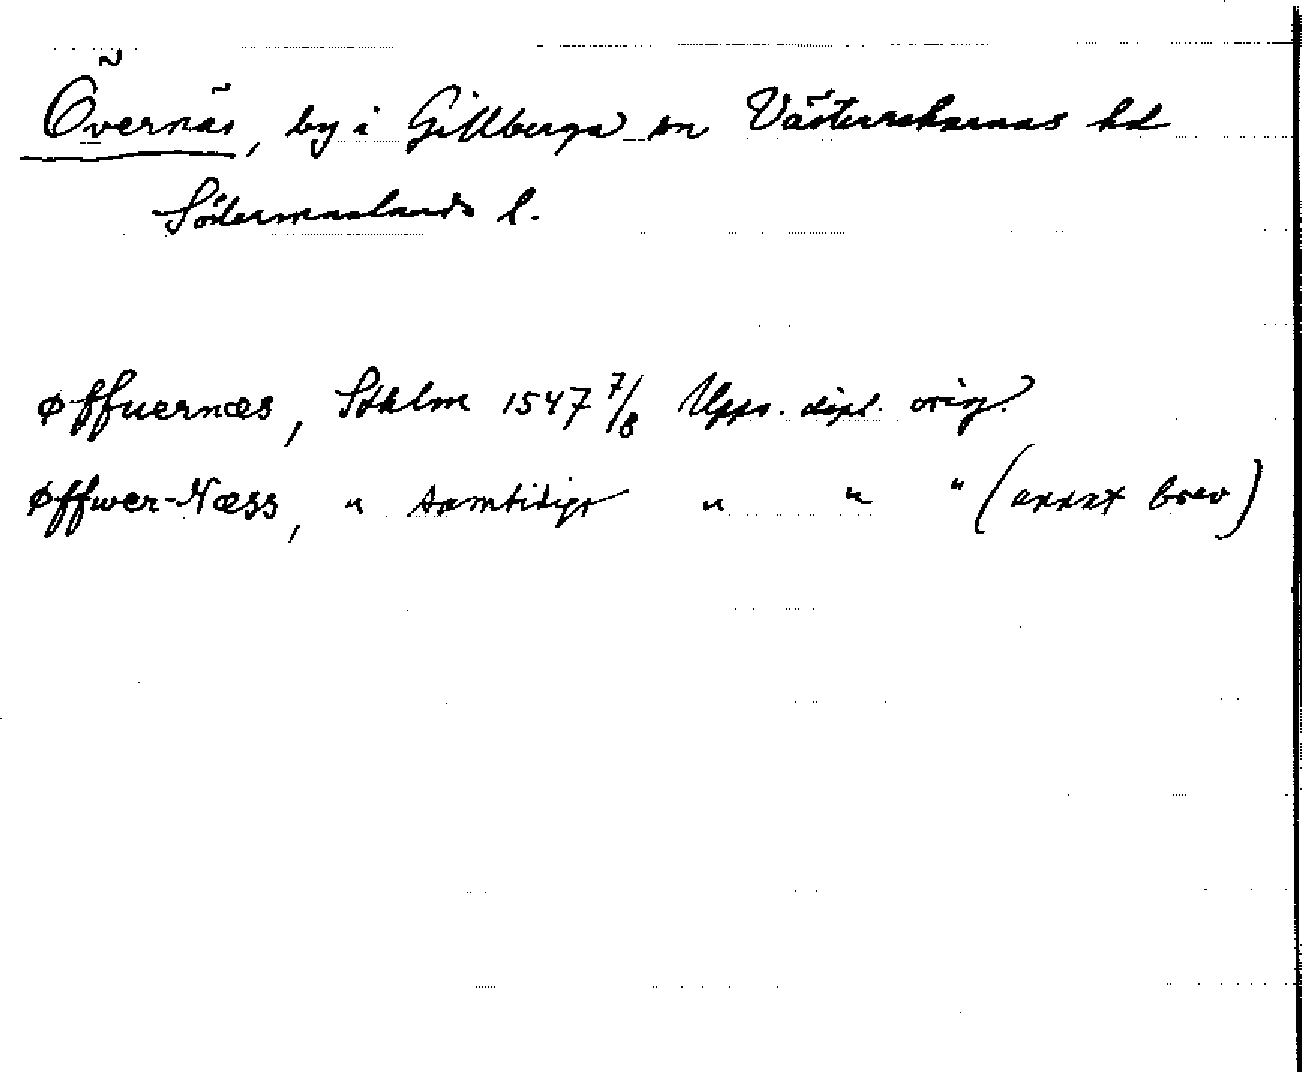 Övernäs, by i Gillberga sn Västerrekarnas hd
Södermanlands l.
øffuernæs, Sthlm 1547 7/8 Upps. dipl. orig.
øffwer-Næss, " samtidigt " " " (annat brev)